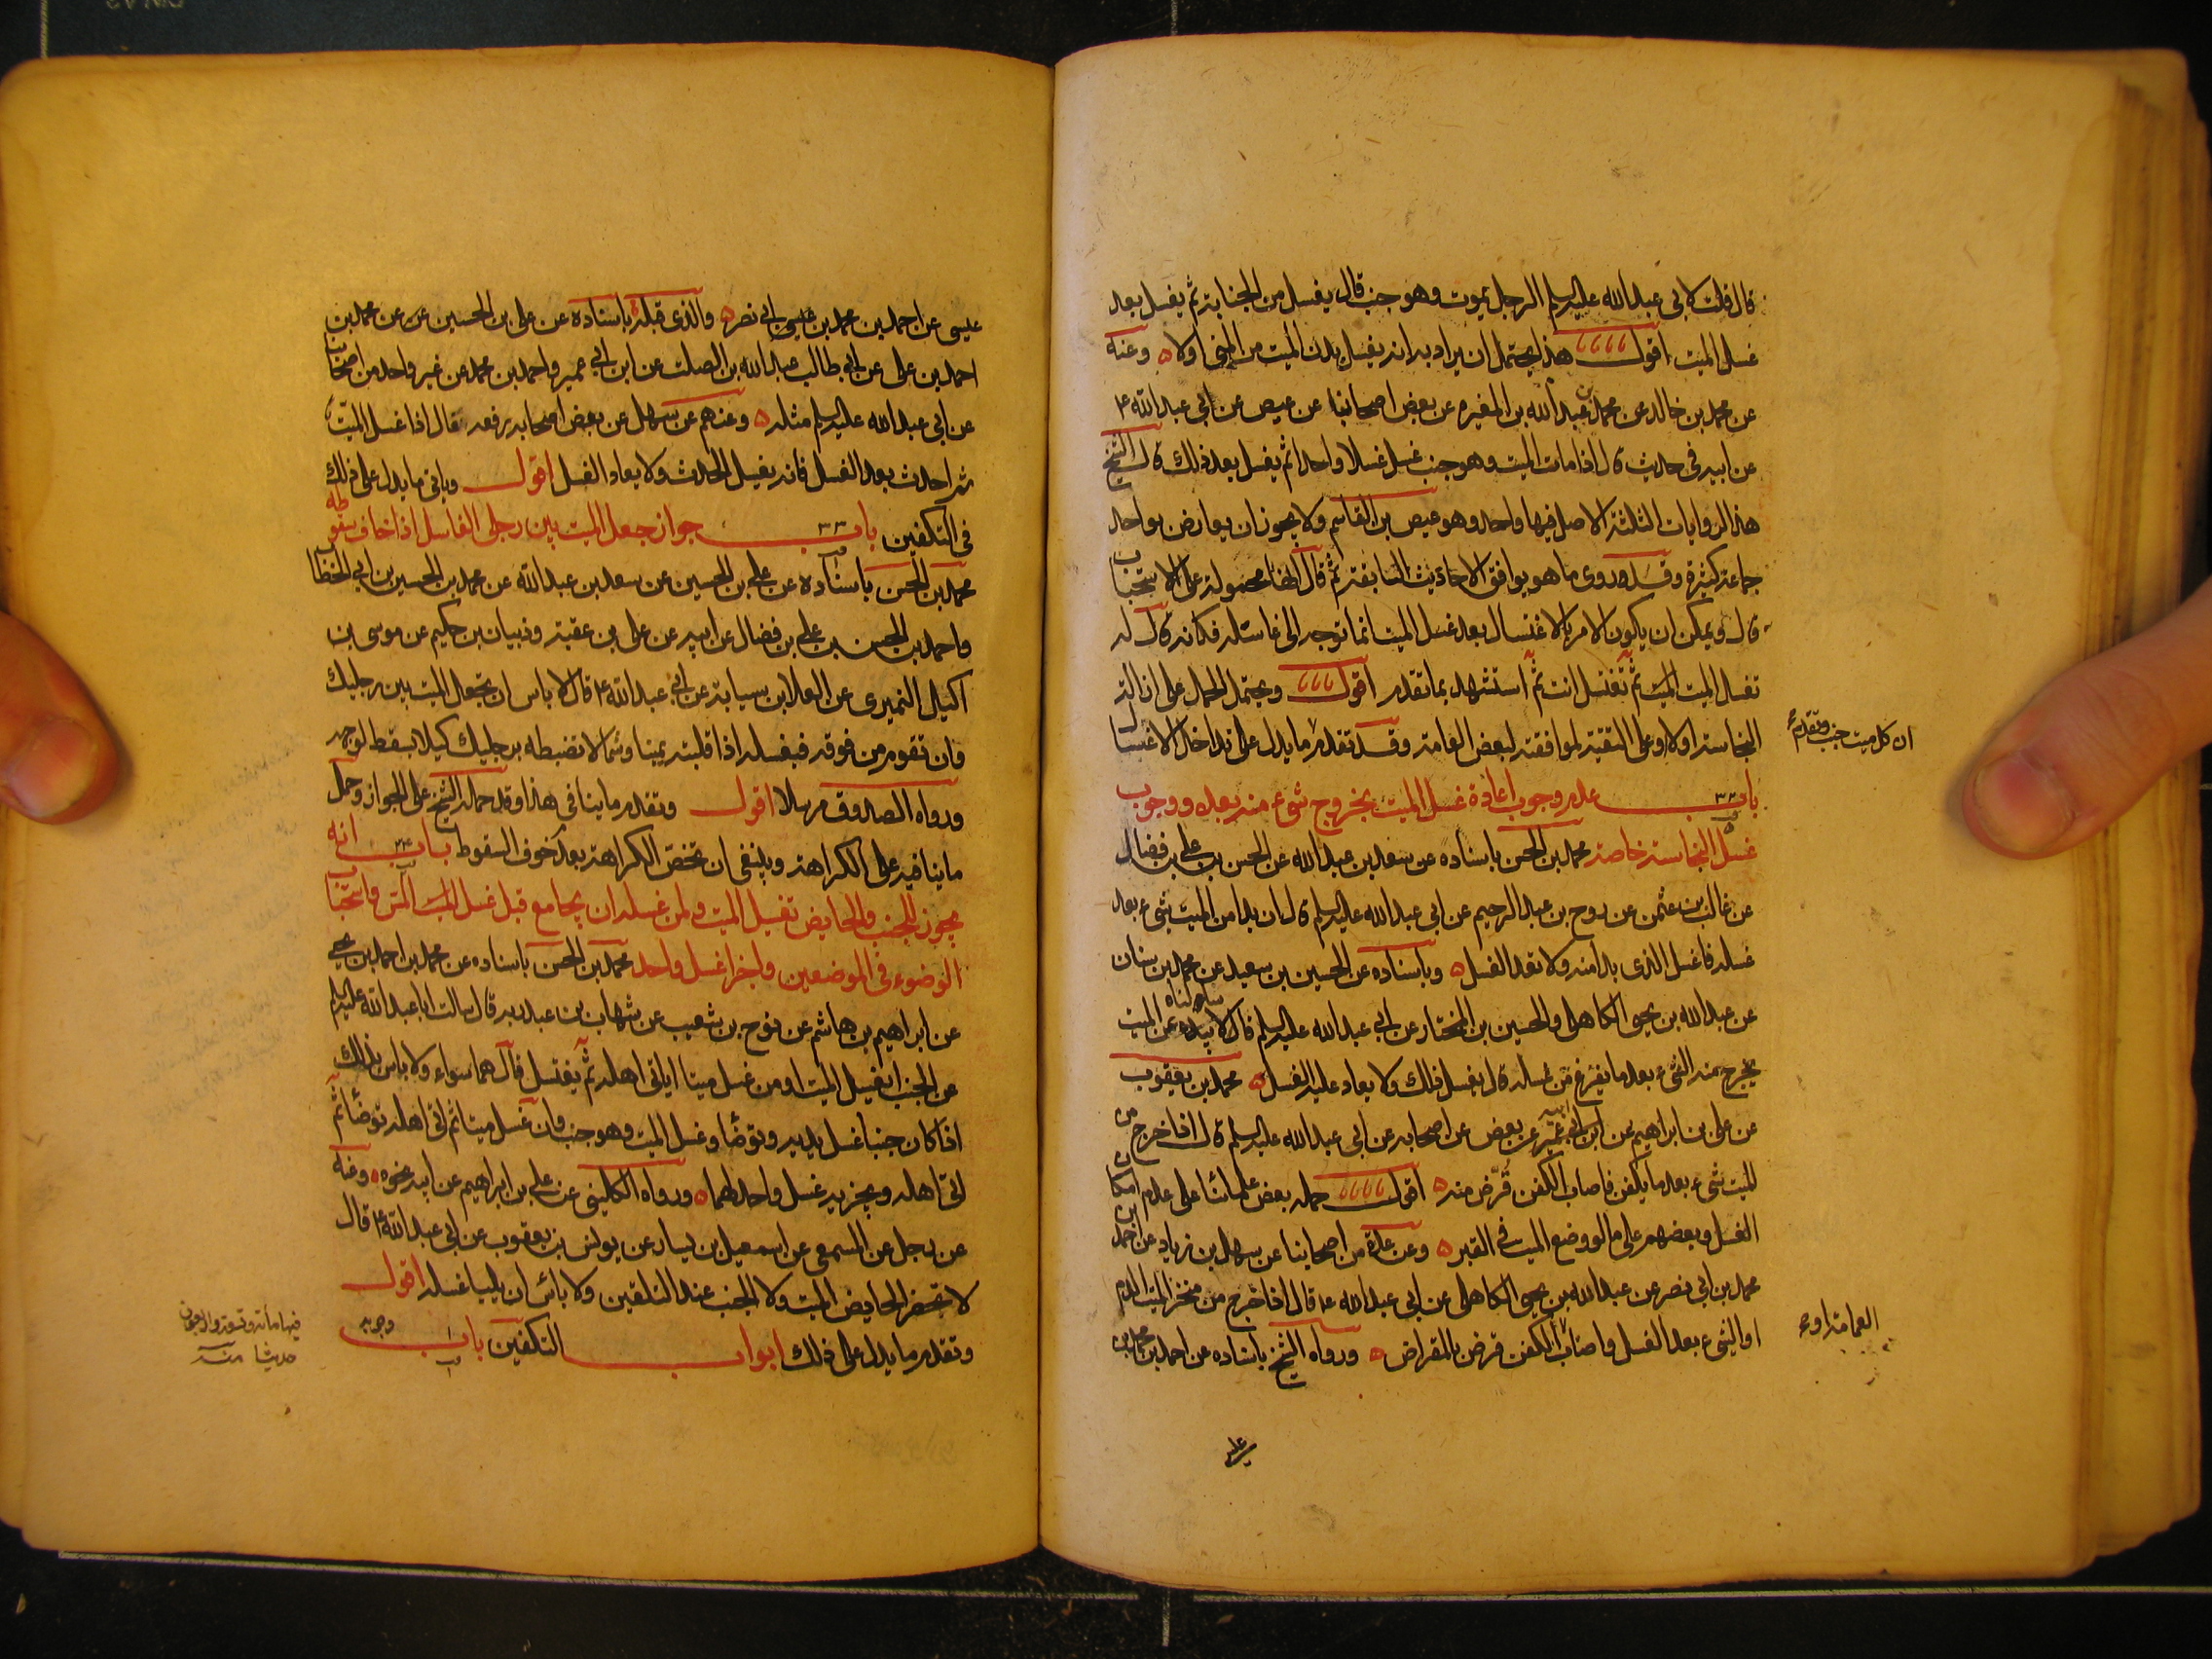 قال قلت لابى عبد الله عليه السلم الرجل يموت وهو جنب قال يغسل من الجنابة ثم يغسل بعد
غسل الميت اقول هذا يحتمل ان يراد به انه يغسل بدن الميت من المنى اولا وعنه
عن محمد بن خالد عن محمد عن عبد الله بن المغيره عن بعض اصحابنا عن عيص عن ابى عبد الله ع
عن ابيه فى حديث قال اذا مات الميت وهو جنب غسل غسلا واحدا ثم يغسل بعد ذلك قال الشيخ
هذه الروايات الثلثة الاصل فيها واحد وهو عيص بن القاسم ولا يجوز ان يعارض بواحد
جماعة كثيرة وقد روى ما هو يوافق الاحاديث السابقة ثم قال انها محمولة على الاستحباب
قال ويمكن ان يكون الامر بالاغتسال بعد غسل الميت انما توجه الى غاسله فكانه قال له
تغسل الميت ثم تغتسل انت ثم استشهد بما تقدم اقول ويحتمل الحمل على ازالة
النجاسة اولا وعلى التقية لموافقته لبعض العامة وقد تقدم ما يدل على تداخل الاغسال
ان كل ميت جنب وتقدم
باب ٣٢ عدم وجوب اعادة غسل الميت بخروج شىء منه بعده ووجوب
غسل النجاسة خاصة محمد بن الحسن باسناده عن سعد بن عبد الله عن الحسن بن على بن فضال
عن غالب بن عثمن عن روح بن عبد الرحيم عن ابى عبد الله عليه السلم قال ان بدا من الميت شىء بعد
غسله فاغسل الذى بدا منه ولا تعد الغسل وباسناده عن الحسين بن سعيد عن محمد بن سنان
عن عبد الله بن يحيى الكاهلى والحسين بن المختار عن ابى عبد الله عليه السلم قالا سالناه عن الميت
يخرج منه الشىء بعد ما يفرغ من غسله قال يغسل ذلك ولا يعاد عليه الغسل محمد بن يعقوب
عن على بن ابراهيم عن ابيه عن ابن ابى عمير عن بعض عن اصحابه عن ابى عبد الله عليه السلم قال اذا خرج من
الميت شىء بعد ما يكفن فاصاب الكفن قرض منه اقول حمله بعض علمائنا على عدم امكان
الغسل وبعضهم على ما لو وضع الميت فى القبر وعن عدة من اصحابنا عن سهل بن زياد عن احمد بن
محمد بن ابى نصر عن عبد الله بن يحيى الكاهلى عن ابى عبد الله ع قال اذا خرج من منخر الميت الدم
او الشىء بعد الغسل واصاب الكفن قرض بالمقراض ورواه الشيخ باسناده عن احمد بن محمد بن
عيسى عن احمد بن محمد بن ابى نصر والذى قبله باسناده عن على بن الحسين عن محمد بن
احمد بن على عن ابى طالب عبد الله بن الصلت عن ابن ابى عمير واحمد بن محمد عن غير واحد من اصحابنا
عن ابى عبد الله عليه السلم مثله وعنهم عن سهل عن بعض اصحابه رفعه قال اذا غسل الميت
ثم احدث بعد الغسل فانه يغسل الحدث ولا يعاد الغسل اقول وياتى ما يدل على ذلك
فى التكفين باب ٣٣ جواز جعل الميت بين رجلى الغاسل اذا خاف سقوطه
محمد بن الحسن باسناده عن على بن الحسين عن سعد بن عبد الله عن محمد بن الحسين بن ابى الخطاب
واحمد بن الحسن بن على بن فضال عن ابيه عن على بن عقبة وذبيان بن حكيم عن موسى بن
اكيل النميرى عن العلا بن سيابة عن ابى عبد الله ع قال لا باس ان تجعل الميت بين رجليك
وان تقوم من فوقه فتغسله اذا قلبته يمينا وشمالا تضبطه برجليك كيلا يسقط لوجهه
ورواه الصدوق مرسلا اقول وتقدم ما ينافى هذا وقد حمله الشيخ على الجواز وحمل
ما ينافيه على الكراهة وينبغى ان تخص الكراهة بعدم خوف السقوط باب ٣٤ انه
يجوز للجنب والحايض تغسيل الميت ولمن غسله ان يجامع قبل غسل المس واستحباب
الوضوء فى الموضعين واجزا غسل واحد محمد بن الحسن باسناده عن محمد بن احمد بن يحيى
عن ابراهيم بن هاشم عن نوح بن شعيب عن شهاب بن عبد ربه قال سالت ابا عبد الله عليه السلم
عن الجنب ايغسل الميت او من غسل ميتا اياتى اهله ثم يغتسل قال هما سواء ولا باس بذلك
اذا كان جنبا غسل يديه وتوضا وغسل الميت وهو جنب وان غسل ميتا ثم اتى اهله توضا ثم
اتى اهله ويجزيه غسل واحد لهما ورواه الكلينى عن على بن ابراهيم عن ابيه نحوه وعنه
عن رجل عن المسمعى عن اسمعيل بن يسار عن يونس بن يعقوب عن ابى عبد الله ع قال
لا تحضر الحايض الميت ولا الجنب عند التلقين ولا بأس ان يليا غسله اقول
وتقدم ما يدل على ذلك ابواب التكفين باب ١ وجوبه